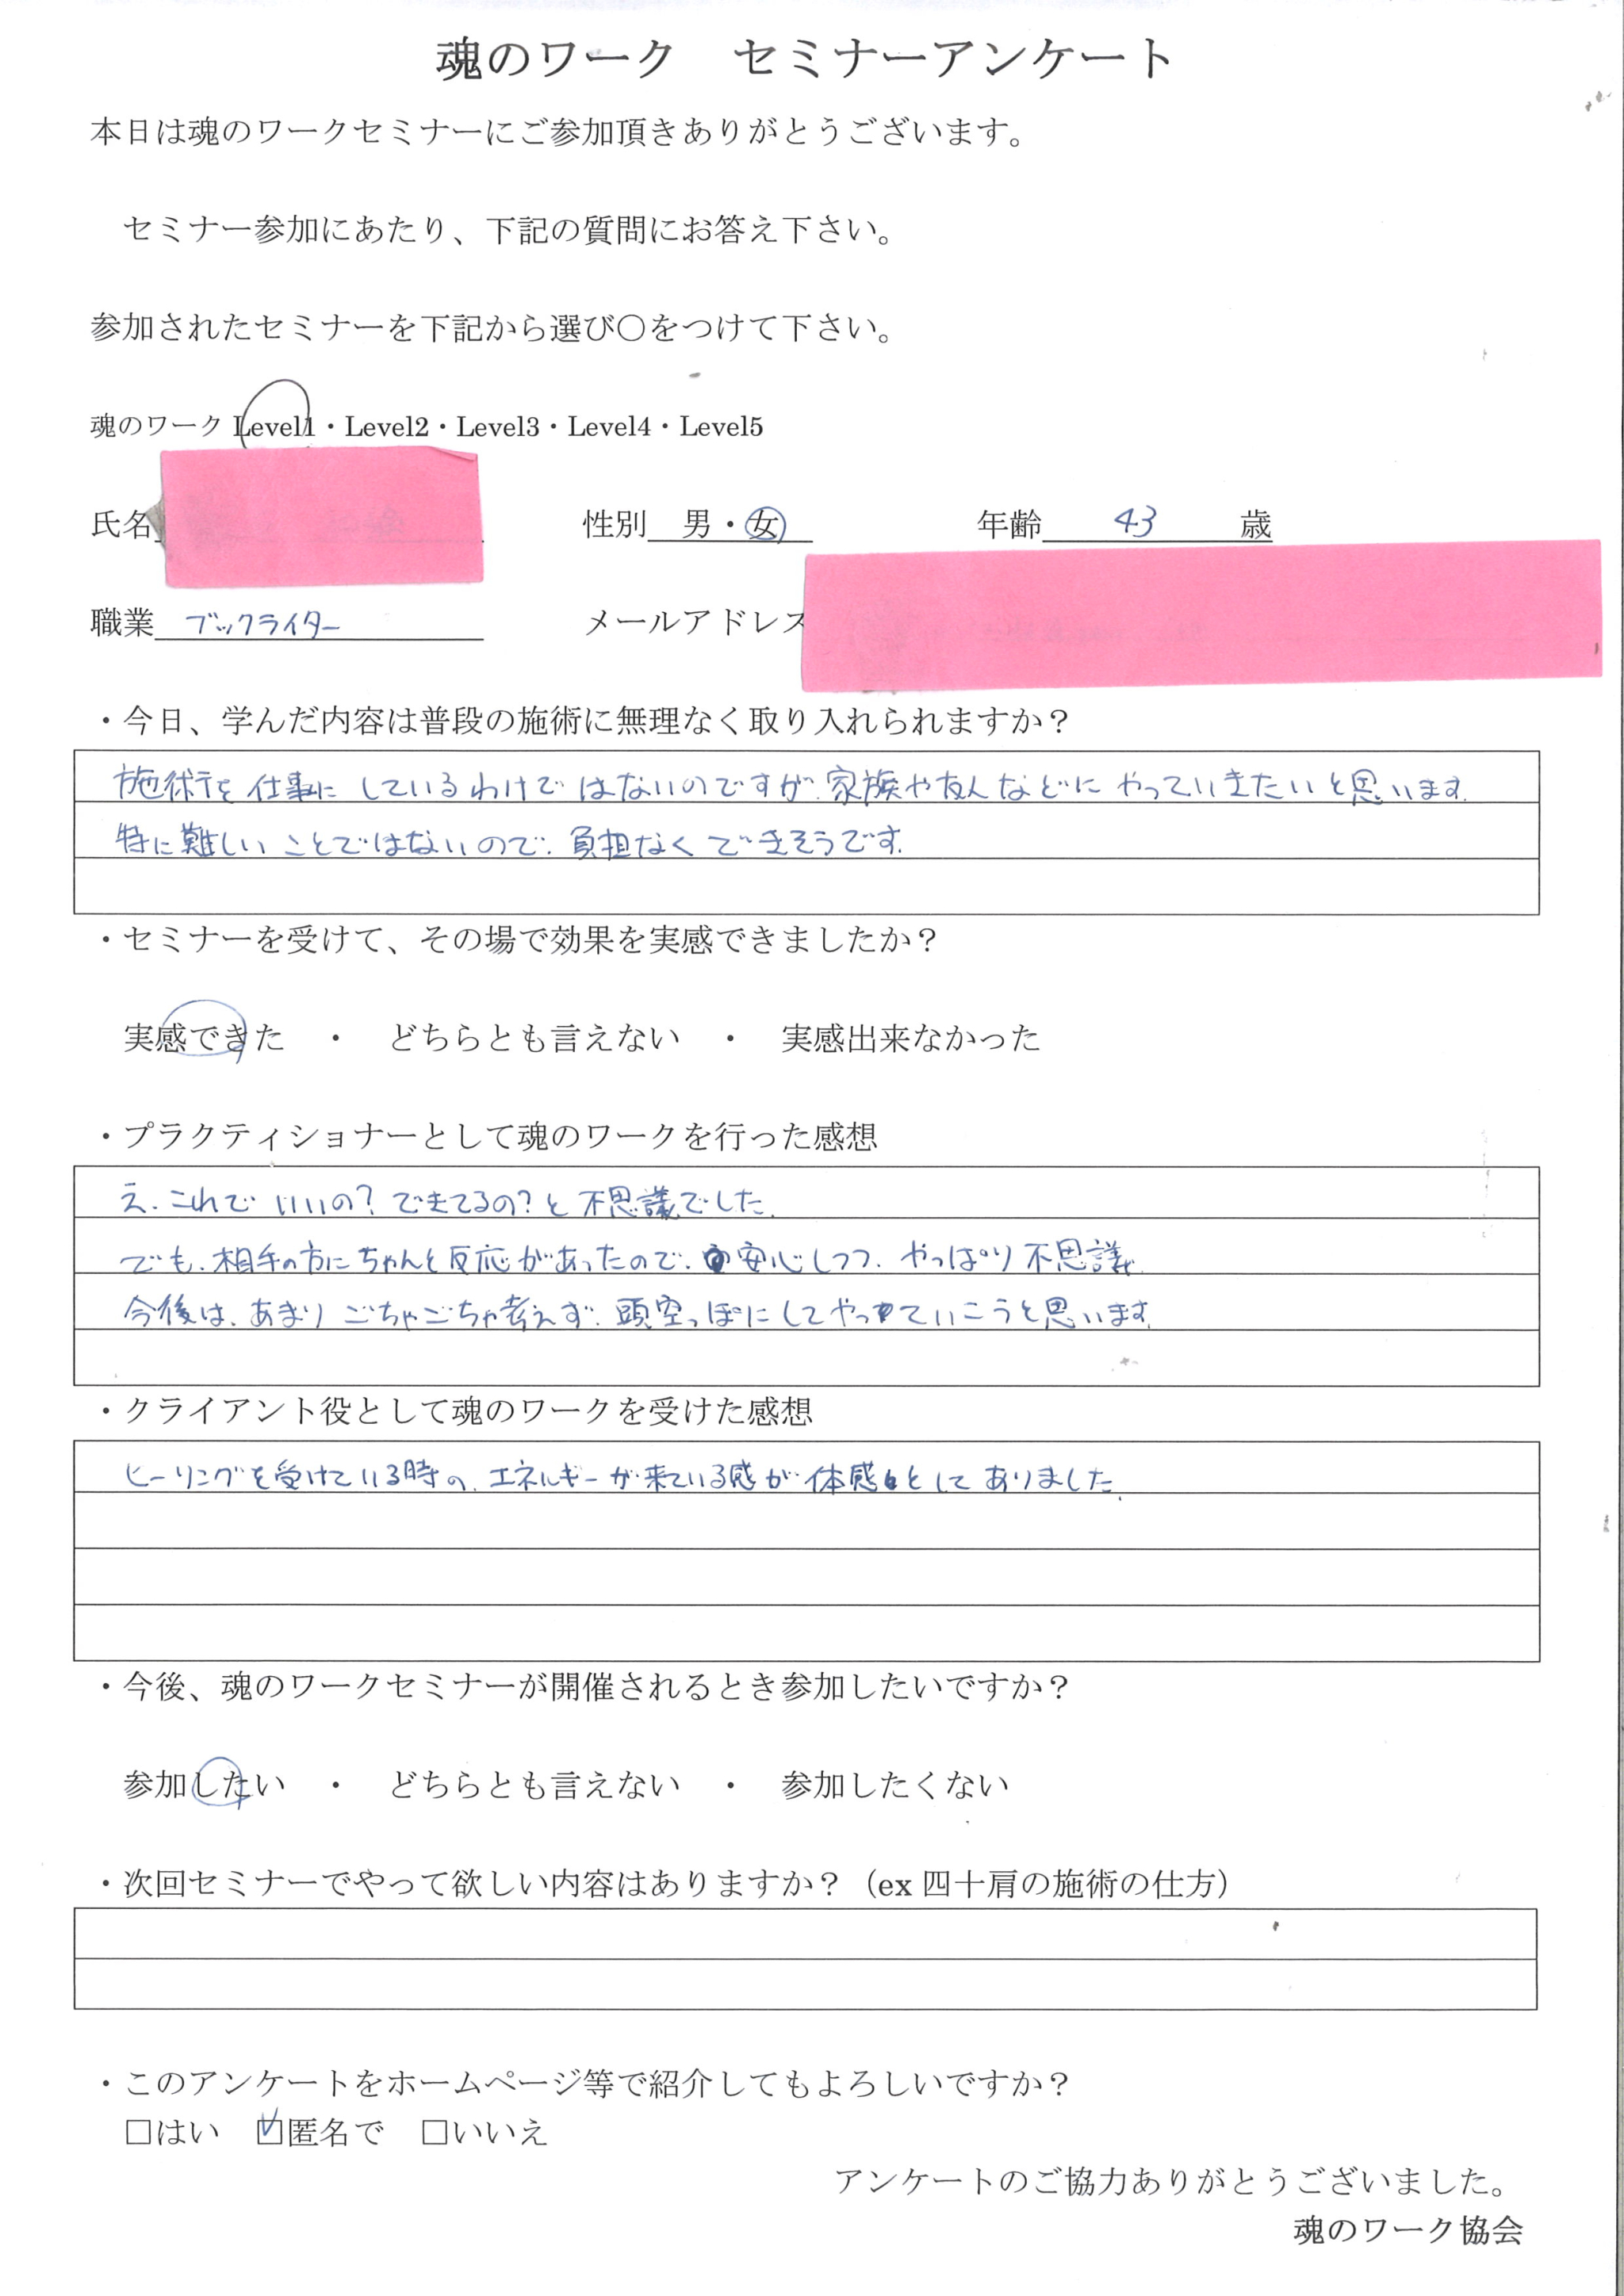 魂のワーク　セミナーアンケート
本日は魂のワークセミナーにご参加頂きありがとうございます。
セミナー参加にあたり、下記の質問にお答え下さい。
参加されたセミナーを下記から選び〇をつけて下さい。
魂のワーク Level1・Level2・Level3・Level4・Level5
氏名 性別 男・女 年齢 43 歳
職業 ブックライター メールアドレス
・今日、学んだ内容は普段の施術に無理なく取り入れられますか？
施術を仕事にしているわけではないのですが、家族や友人などにやっていきたいと思います。
特に難しいことではないので、負担なくできそうです。
・セミナーを受けて、その場で効果を実感できましたか？
実感できた　・　どちらとも言えない　・　実感出来なかった
・プラクティショナーとして魂のワークを行った感想
え、これでいいの？できてるの？と不思議でした。
でも、相手の方にちゃんと反応があったので、安心しつつ、やっぱり不思議。
今後は、あまりごちゃごちゃ考えず、頭空っぽにしてやっていこうと思います。
・クライアント役として魂のワークを受けた感想
ヒーリングを受けている時の、エネルギーが来ている感が体感としてありました。
・今後、魂のワークセミナーが開催されるとき参加したいですか？
参加したい　・　どちらとも言えない　・　参加したくない
・次回セミナーでやって欲しい内容はありますか？（ex 四十肩の施術の仕方）
・このアンケートをホームページ等で紹介してもよろしいですか？
□はい　☑匿名で　□いいえ
アンケートのご協力ありがとうございました。
魂のワーク協会